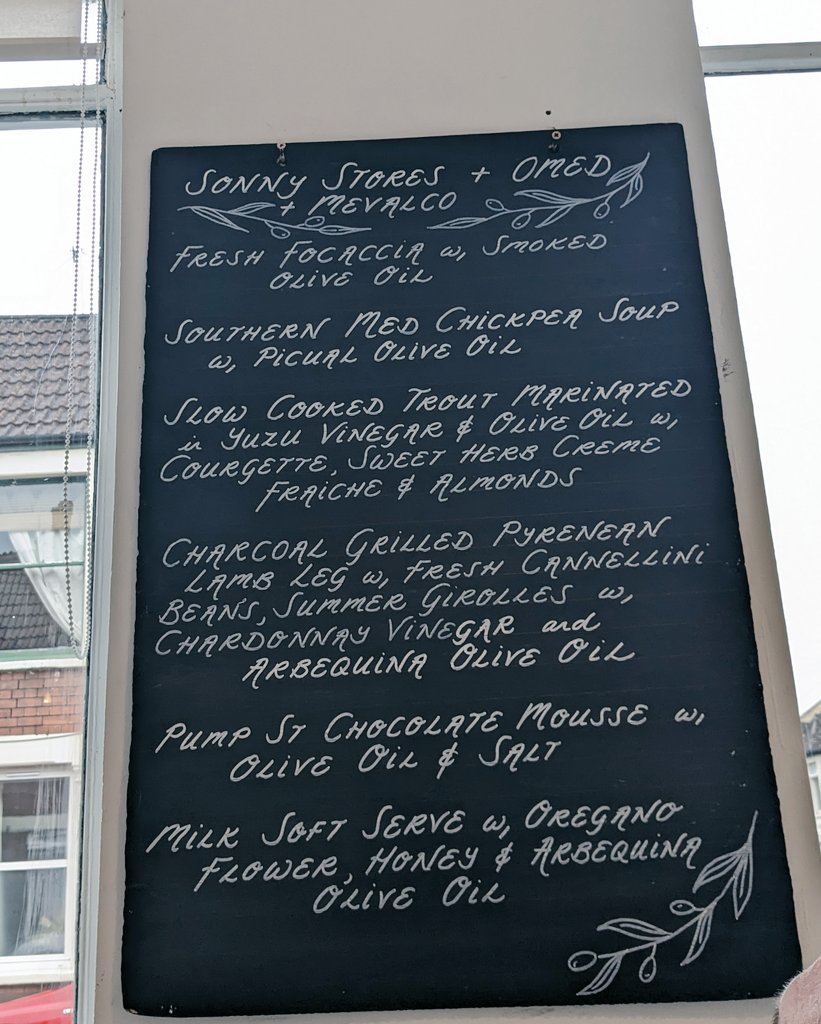 SONNY STORES + OMED
+ MEVALCO
FRESH FOCACCIA w, SMOKED
OLIVE OIL
SOUTHERN MED CHICKPEA SOUP
w, PICUAL OLIVE OIL
SLOW COOKED TROUT MARINATED
in YUZU VINEGAR & OLIVE OIL w,
COURGETTE, SWEET HERB CREME
FRAICHE & ALMONDS
CHARCOAL GRILLED PYRENEAN
LAMB LEG w, FRESH CANNELLINI
BEANS, SUMMER GIROLLES w,
CHARDONNAY VINEGAR and
ARBEQUINA OLIVE OIL
PUMP ST CHOCOLATE MOUSSE w,
OLIVE OIL & SALT
MILK SOFT SERVE w, OREGANO
FLOWER, HONEY & ARBEQUINA
OLIVE OIL